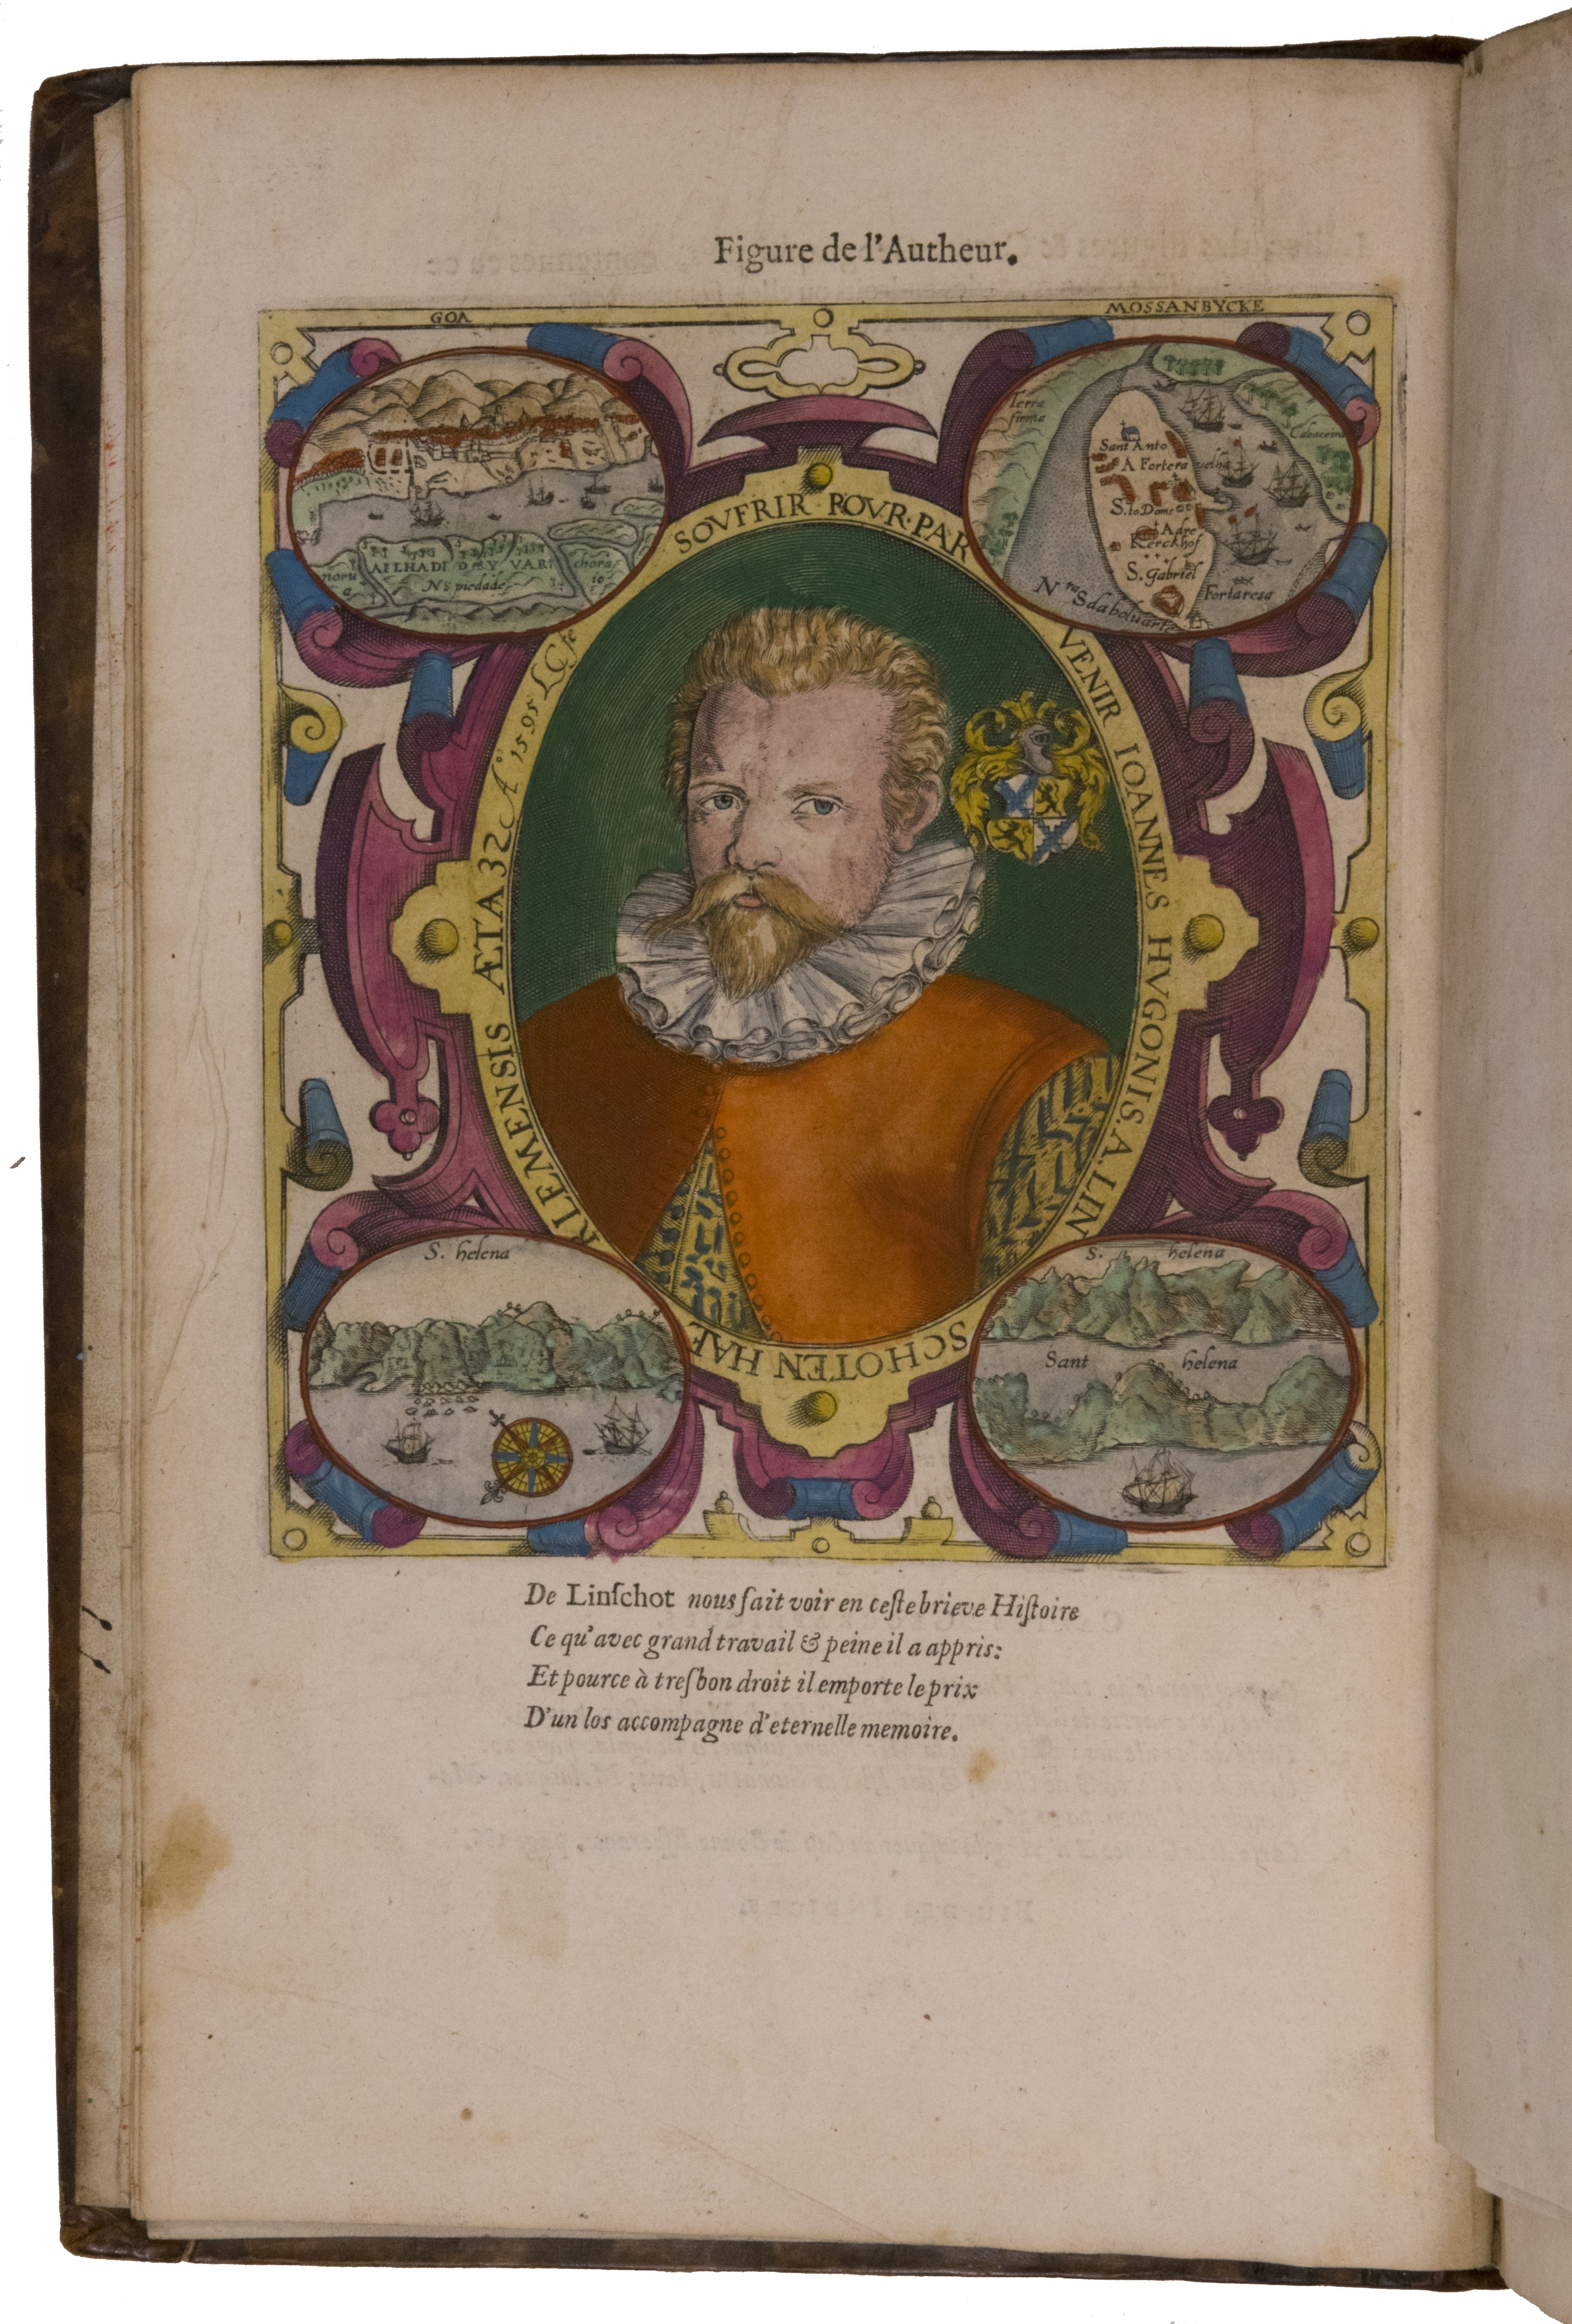 Figure de l'Autheur.
GOA
MOSSANBYCKE
Terra
firma
Cabaceira
Sant Anto
A Fortera velha
S.to Dom
Adre
Kerckhof
S. Gabriel
Fortaresa
AILHADI DYVARI
chora
io
noru
a
NS piedade
SOVFRIR POVR·PAR
VENIR IOANNES HVGONIS.A.LIN
SCHOTEN HAE
RLEMENSIS ÆTA 32 Aº 1595
S. helena
S. helena
Sant helena
De Linſchot nous fait voir en ceſte brieve Hiſtoire
Ce qu'avec grand travail & peine il a appris:
Et pource à treſbon droit il emporte le prix
D'un los accompagne d'eternelle memoire.